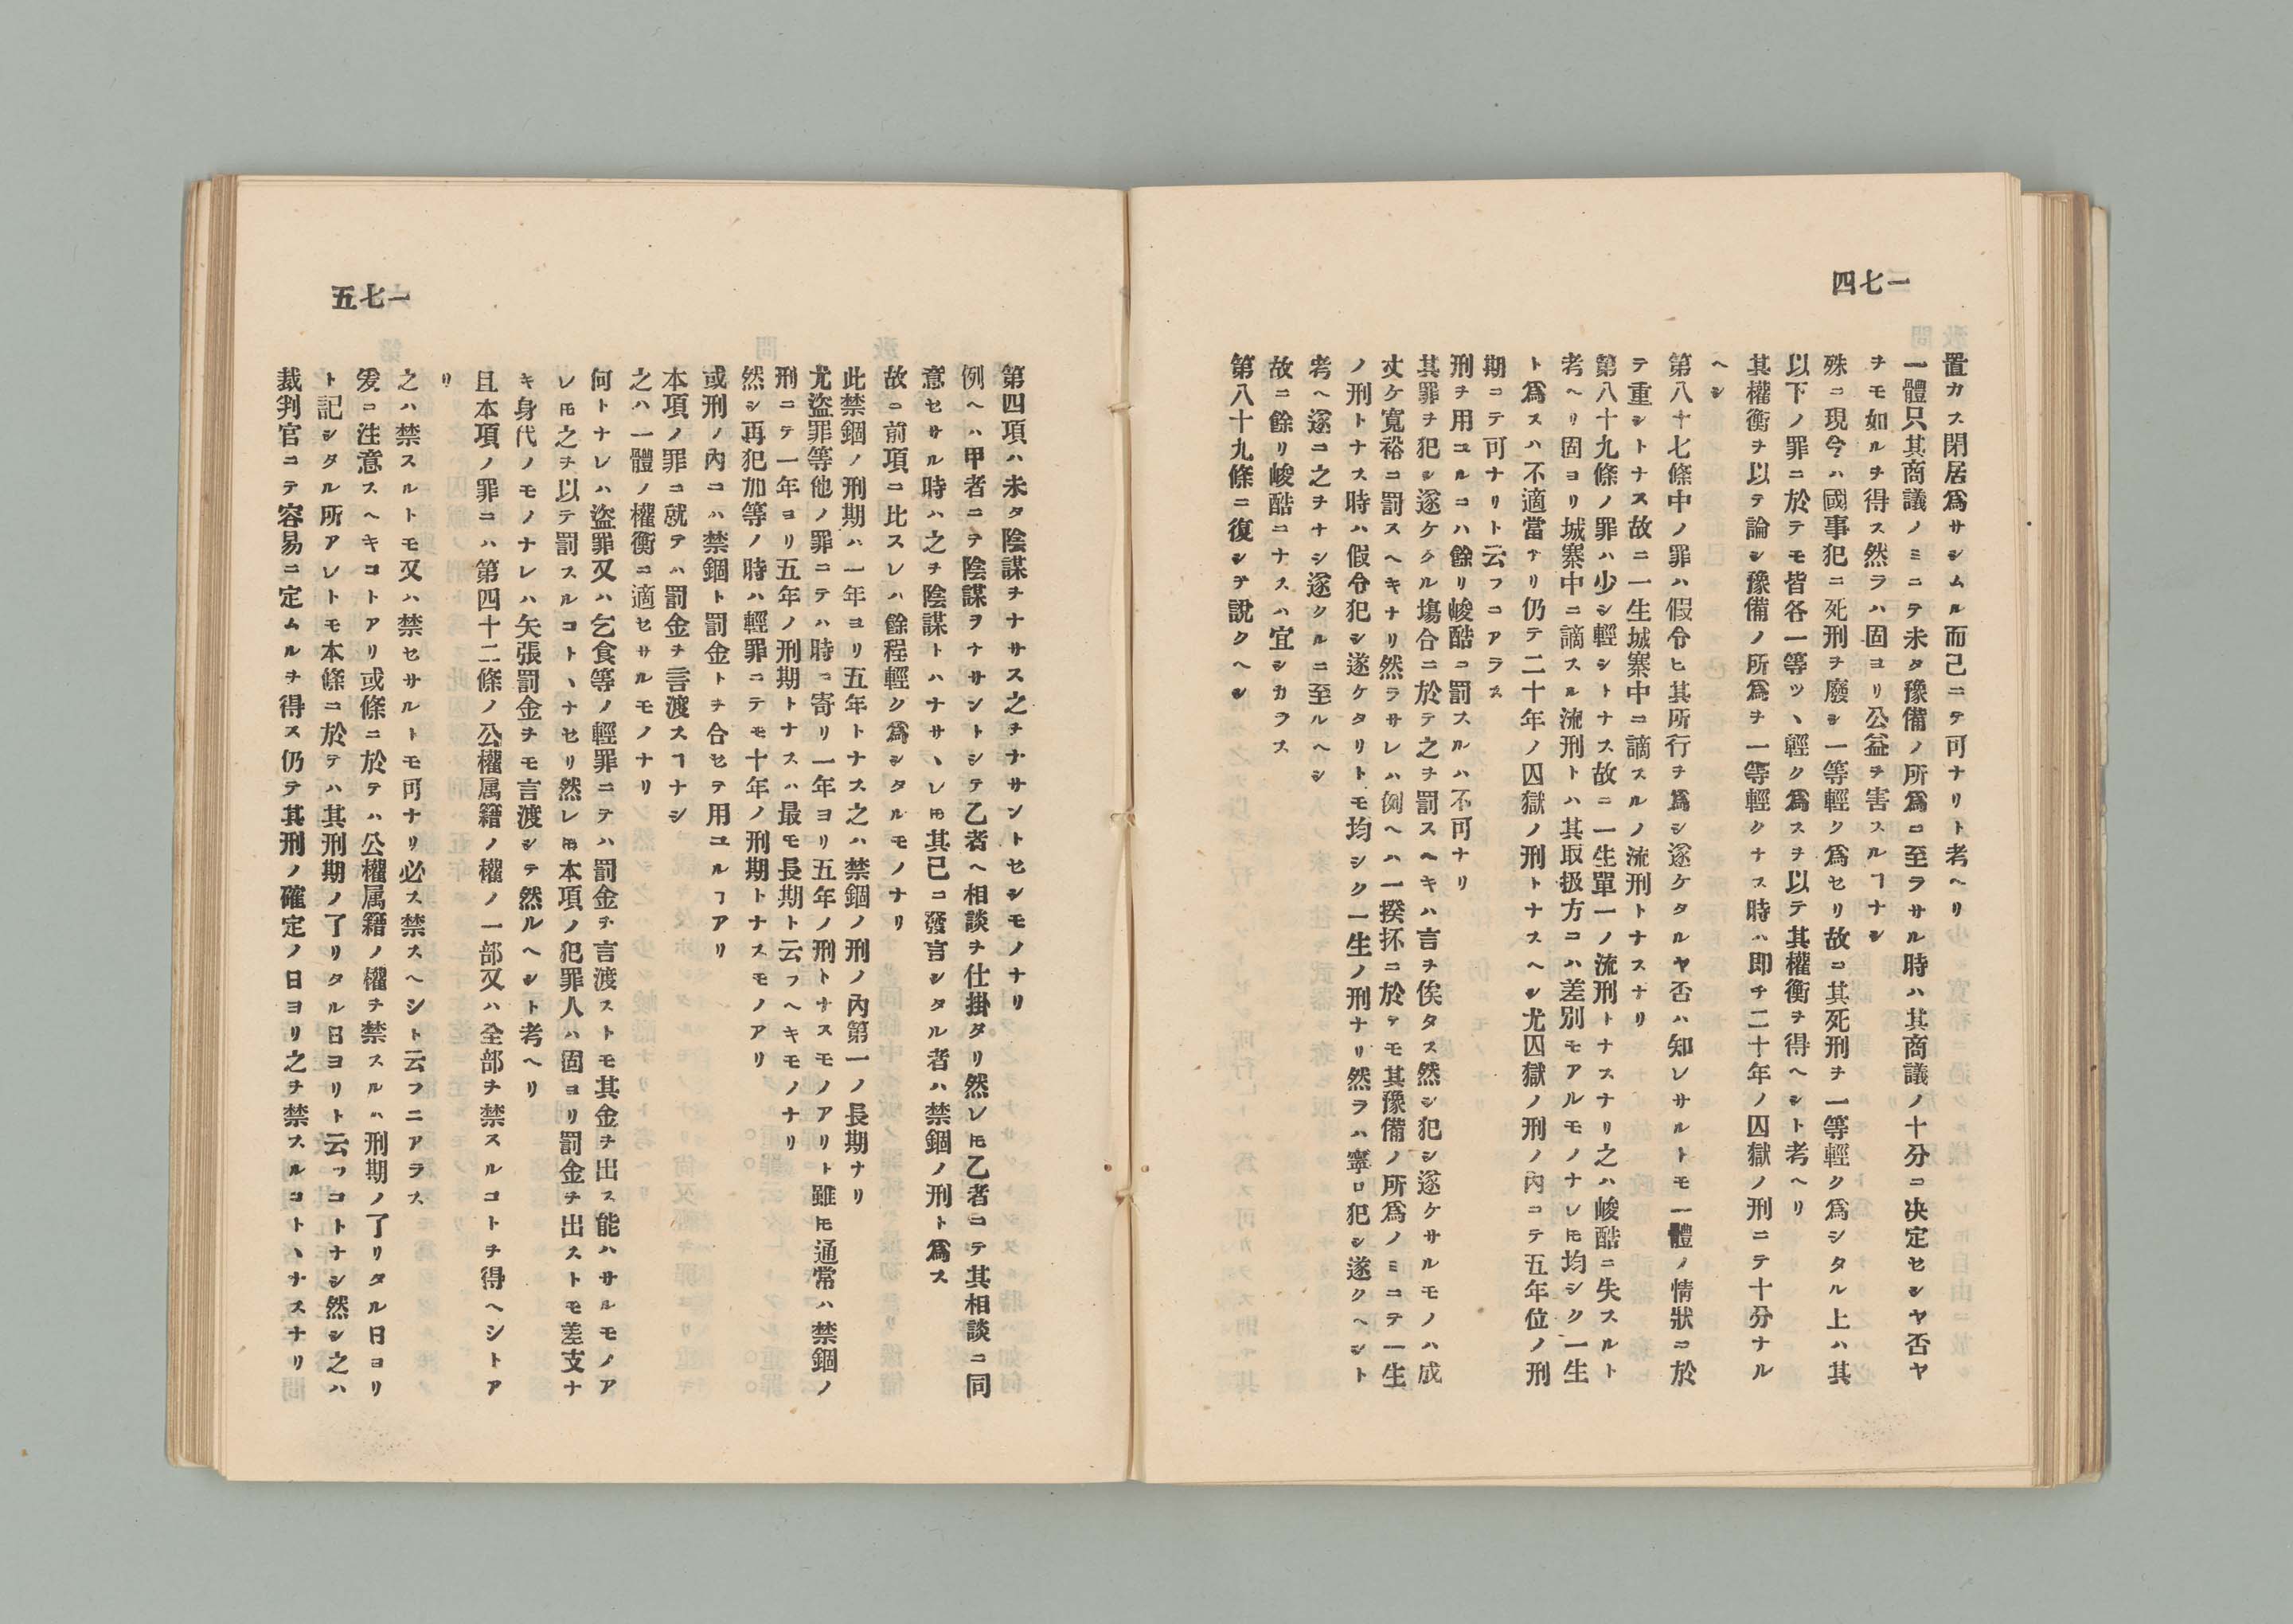 一七四
置カス閉居爲サシムル而已ニテ可ナリト考ヘリ
一體只其商議ノミニテ未タ豫備ノ所爲ニ至ラサル時ハ其商議ノ十分ニ决定セシヤ否ヤ
ヲモ如ルヲ得ス然ラハ固ヨリ公益ヲ害スルヿナシ
殊ニ現今ハ國事犯ニ死刑ヲ廢シ一等輕ク爲セリ故ニ其死刑ヲ一等輕ク爲シタル上ハ其
以下ノ罪ニ於テモ皆各一等ツヽ輕ク爲スヲ以テ其權衡ヲ得ヘシト考ヘリ
其權衡ヲ以テ論シ豫備ノ所爲ヲ一等輕クナス時ハ即チ二十年ノ囚獄ノ刑ニテ十分ナル
ヘシ
第八十七條中ノ罪ハ假令ヒ其所行ヲ爲シ遂ケタルヤ否ハ知レサルトモ一體ノ情狀ニ於
テ重シトナス故ニ一生城寨中ニ謫スルノ流刑トナスナリ
第八十九條ノ罪ハ少シ輕シトナス故ニ一生單一ノ流刑トナスナリ之ハ峻酷ニ失スルト
考ヘリ固ヨリ城寨中ニ謫スル流刑トハ其取扱方ニハ差別モアルモノナレ𪜈均シク一生
ト爲スハ不適當ナリ仍テ二十年ノ囚獄ノ刑トナスヘシ尤囚獄ノ刑ノ内ニテ五年位ノ刑
期ニテ可ナリト云フニアラス
刑ヲ用ユルニハ餘リ峻酷ニ罰スルハ不可ナリ
其罪ヲ犯シ遂ケタル塲合ニ於テ之ヲ罰スヘキハ言ヲ俟タス然シ犯シ遂ケサルモノハ成
丈ケ寬裕ニ罰スヘキナリ然ラサレハ例ヘハ一揆抔ニ於テモ其豫備ノ所爲ノミニテ一生
ノ刑トナス時ハ假令犯シ遂ケタリトモ均シク一生ノ刑ナリ然ラハ寧ロ犯シ遂クヘシト
考ヘ遂ニ之ヲナシ遂クルニ至ルヘシ
故ニ餘リ峻酷ニナスハ宜シカラス
第八十九條ニ復シテ說クヘシ
一七五
第四項ハ未タ陰謀ヲナサス之ヲナサントセシモノナリ
例ヘハ甲者ニテ陰謀ヲナサントシテ乙者ヘ相談ヲ仕掛タリ然レ𪜈乙者ニテ其相談ニ同
意セサル時ハ之ヲ陰謀トハナサヽレ𪜈其已ニ發言シタル者ハ禁錮ノ刑ト爲ス
故ニ前項ニ比スレハ餘程輕ク爲シタルモノナリ
此禁錮ノ刑期ハ一年ヨリ五年トナス之ハ禁錮ノ刑ノ內第一ノ長期ナリ
尤盜罪等他ノ罪ニテハ時ニ寄リ一年ヨリ五年ノ刑トナスモノアリト雖𪜈通常ハ禁錮ノ
刑ニテ一年ヨリ五年ノ刑期トナスハ最モ長期ト云フヘキモノナリ
然シ再犯加等ノ時ハ輕罪ニテモ十年ノ刑期トナスモノアリ
或刑ノ內ニハ禁錮ト罰金トヲ合セテ用ユルヿアリ
本項ノ罪ニ就テハ罰金ヲ言渡スヿナシ
之ハ一體ノ權衡ニ適セサルモノナリ
何トナレハ盜罪又ハ乞食等ノ輕罪ニテハ罰金ヲ言渡ストモ其金ヲ出ス能ハサルモノア
レ𪜈之ヲ以テ罰スルコトヽナセリ然レ𪜈本項ノ犯罪人ハ固ヨリ罰金ヲ出ストモ差支ナ
キ身代ノモノナレハ矢張罰金ヲモ言渡シテ然ルヘシト考ヘリ
且本項ノ罪ニハ第四十二條ノ公權属籍ノ權ノ一部又ハ全部ヲ禁スルコトヲ得ヘシトア
リ
之ハ禁スルトモ又ハ禁セサルトモ可ナリ必ス禁スヘシト云フニアラス
爰ニ注意スヘキコトアリ或條ニ於テハ公權属籍ノ權ヲ禁スルハ刑期ノ了リタル日ヨリ
ト記シタル所アレトモ本條ニ於テハ其刑期ノ了リタル日ヨリト云フコトナシ然シ之ハ
裁判官ニテ容易ニ定ムルヲ得ス仍テ其刑ノ確定ノ日ヨリ之ヲ禁スルコトヽナスナリ